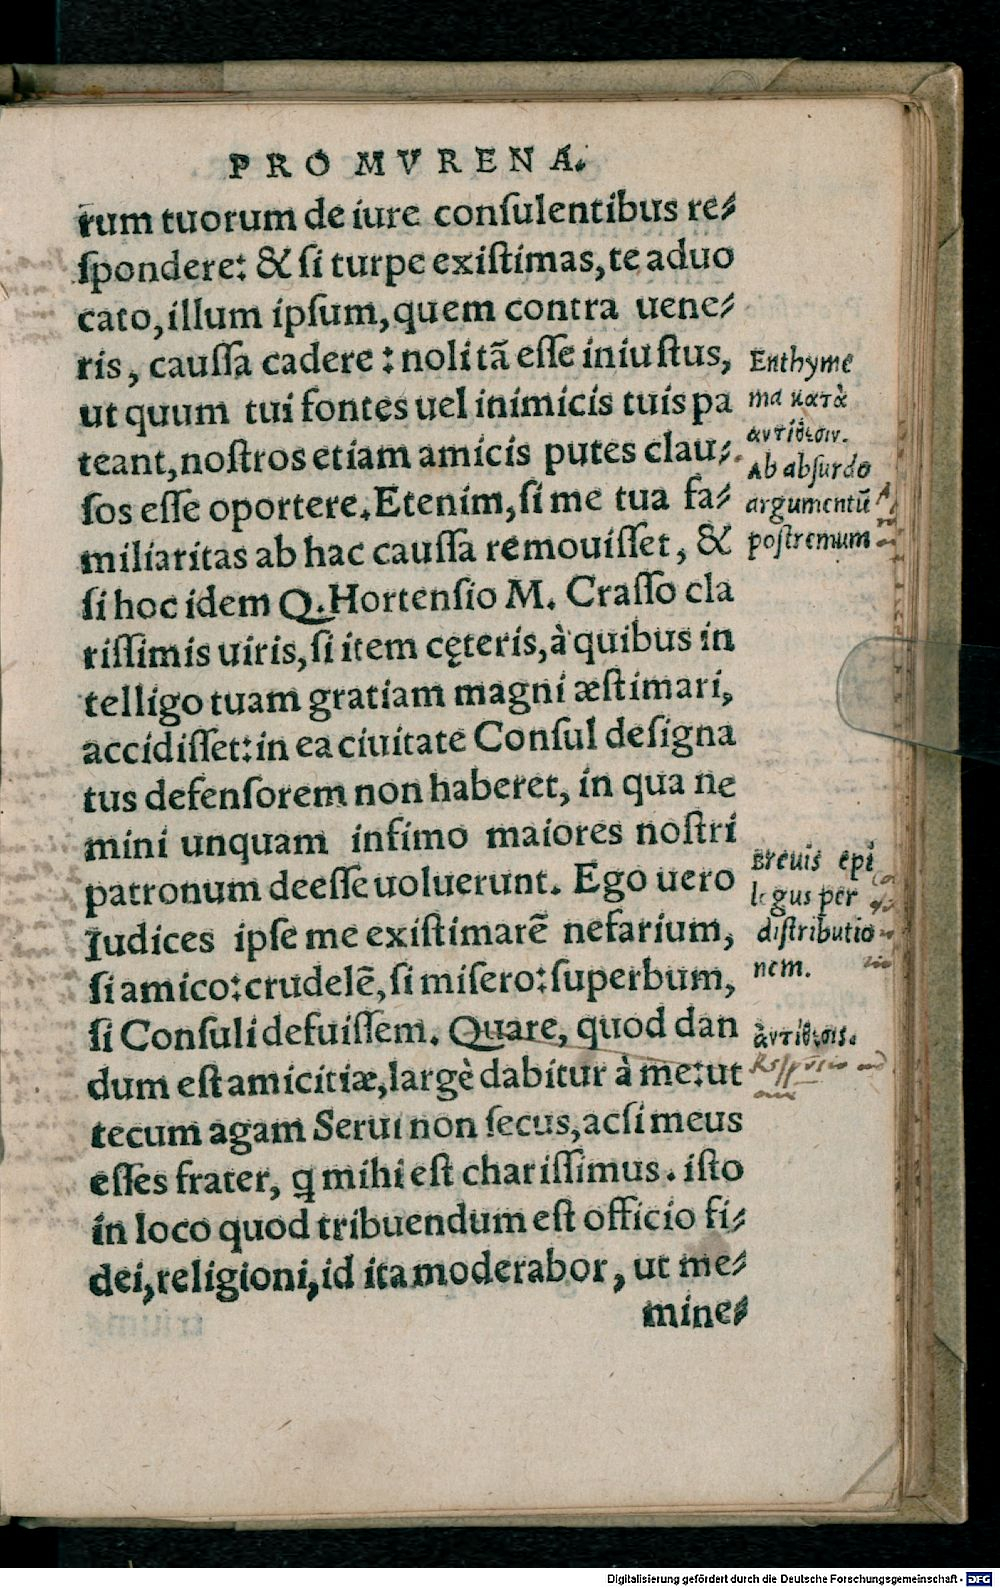 PRO MVRENA.
rum tuorum de iure conſulentibus re⸗
ſpondere: & ſi turpe exiſtimas, te aduo
cato, illum ipſum, quem contra uene⸗
ris, cauſſa cadere: noli tā eſſe iniuſtus,
ut quum tui fontes uel inimicis tuis pa
teant, noſtros etiam amicis putes clau⸗
ſos eſſe oportere. Etenim, ſi me tua fa⸗
miliaritas ab hac cauſſa remouiſſet, &
ſi hoc idem Q. Hortenſio M. Craſſo cla
riſſimis uiris, ſi item cęteris, à quibus in
telligo tuam gratiam magni æſtimari,
accidiſſet: in ea ciuitate Conſul deſigna
tus defenſorem non haberet, in qua ne
mini unquam infimo maiores noſtri
patronum deeſſe uoluerunt. Ego uero
Iudices ipſe me exiſtimarē nefarium,
ſi amico: crudelē, ſi miſero: ſuperbum,
ſi Conſuli defuiſſem. Quare, quod dan
dum eſt amicitiæ, largè dabitur à me: ut
tecum agam Serui non ſecus, ac ſi meus
eſſes frater, q mihi eſt chariſſimus. iſto
in loco quod tribuendum eſt officio fi⸗
dei, religioni, id ita moderabor, ut me⸗
mine⸗
Enthyme
ma κατὰ
ἀντίθεσιν.
Ab abſurdo
argumentū
poſtremum
Breuis epi
logus per
diſtributio
nem.
ἀντίθεσις.
Digitalisierung gefördert durch die Deutsche Forschungsgemeinschaft - DFG